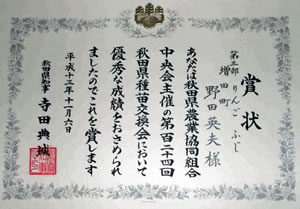 賞状
第三部 りんご ふじ
増田町
野田英夫様
あなたは秋田県農業協同組合
中央会主催の第百二十四回
秋田県種苗交換会において
優秀な成績をおさめられ
ましたのでこれを賞します
平成十三年十一月六日
秋田県知事 寺田典城